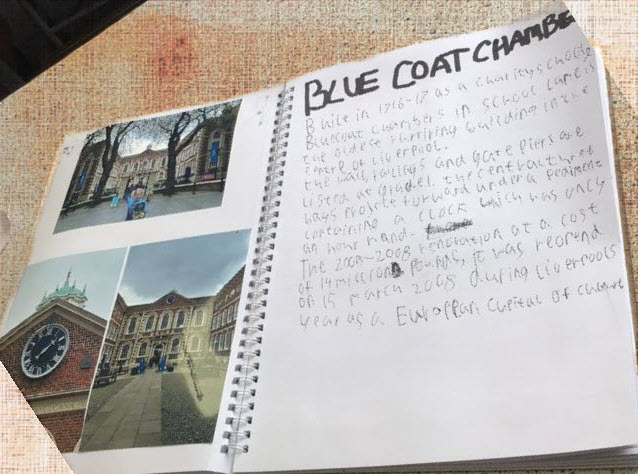 BLUE COAT CHAMBE
Built in 1716-17 as a charity school
Bluecoat Chambers in School Lane is
the oldest surviving building in the
centre of Liverpool.
the wall, railings and gate piers are
listed at grade1. the central three
bays project forward under a pediment
containing a clock which has only
an hour hand.
The 2008 renovation at a cost
of 14 million pounds, it was reopend
on 15 march 2008 during Liverpools
year as a European Capital of